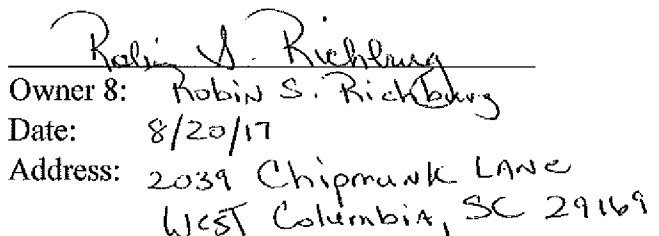 Robin S. Richburg
Owner 8: Robin S. Richburg
Date: 8/20/17
Address: 2039 Chipmunk LANe
WesT Columbia, SC 29169